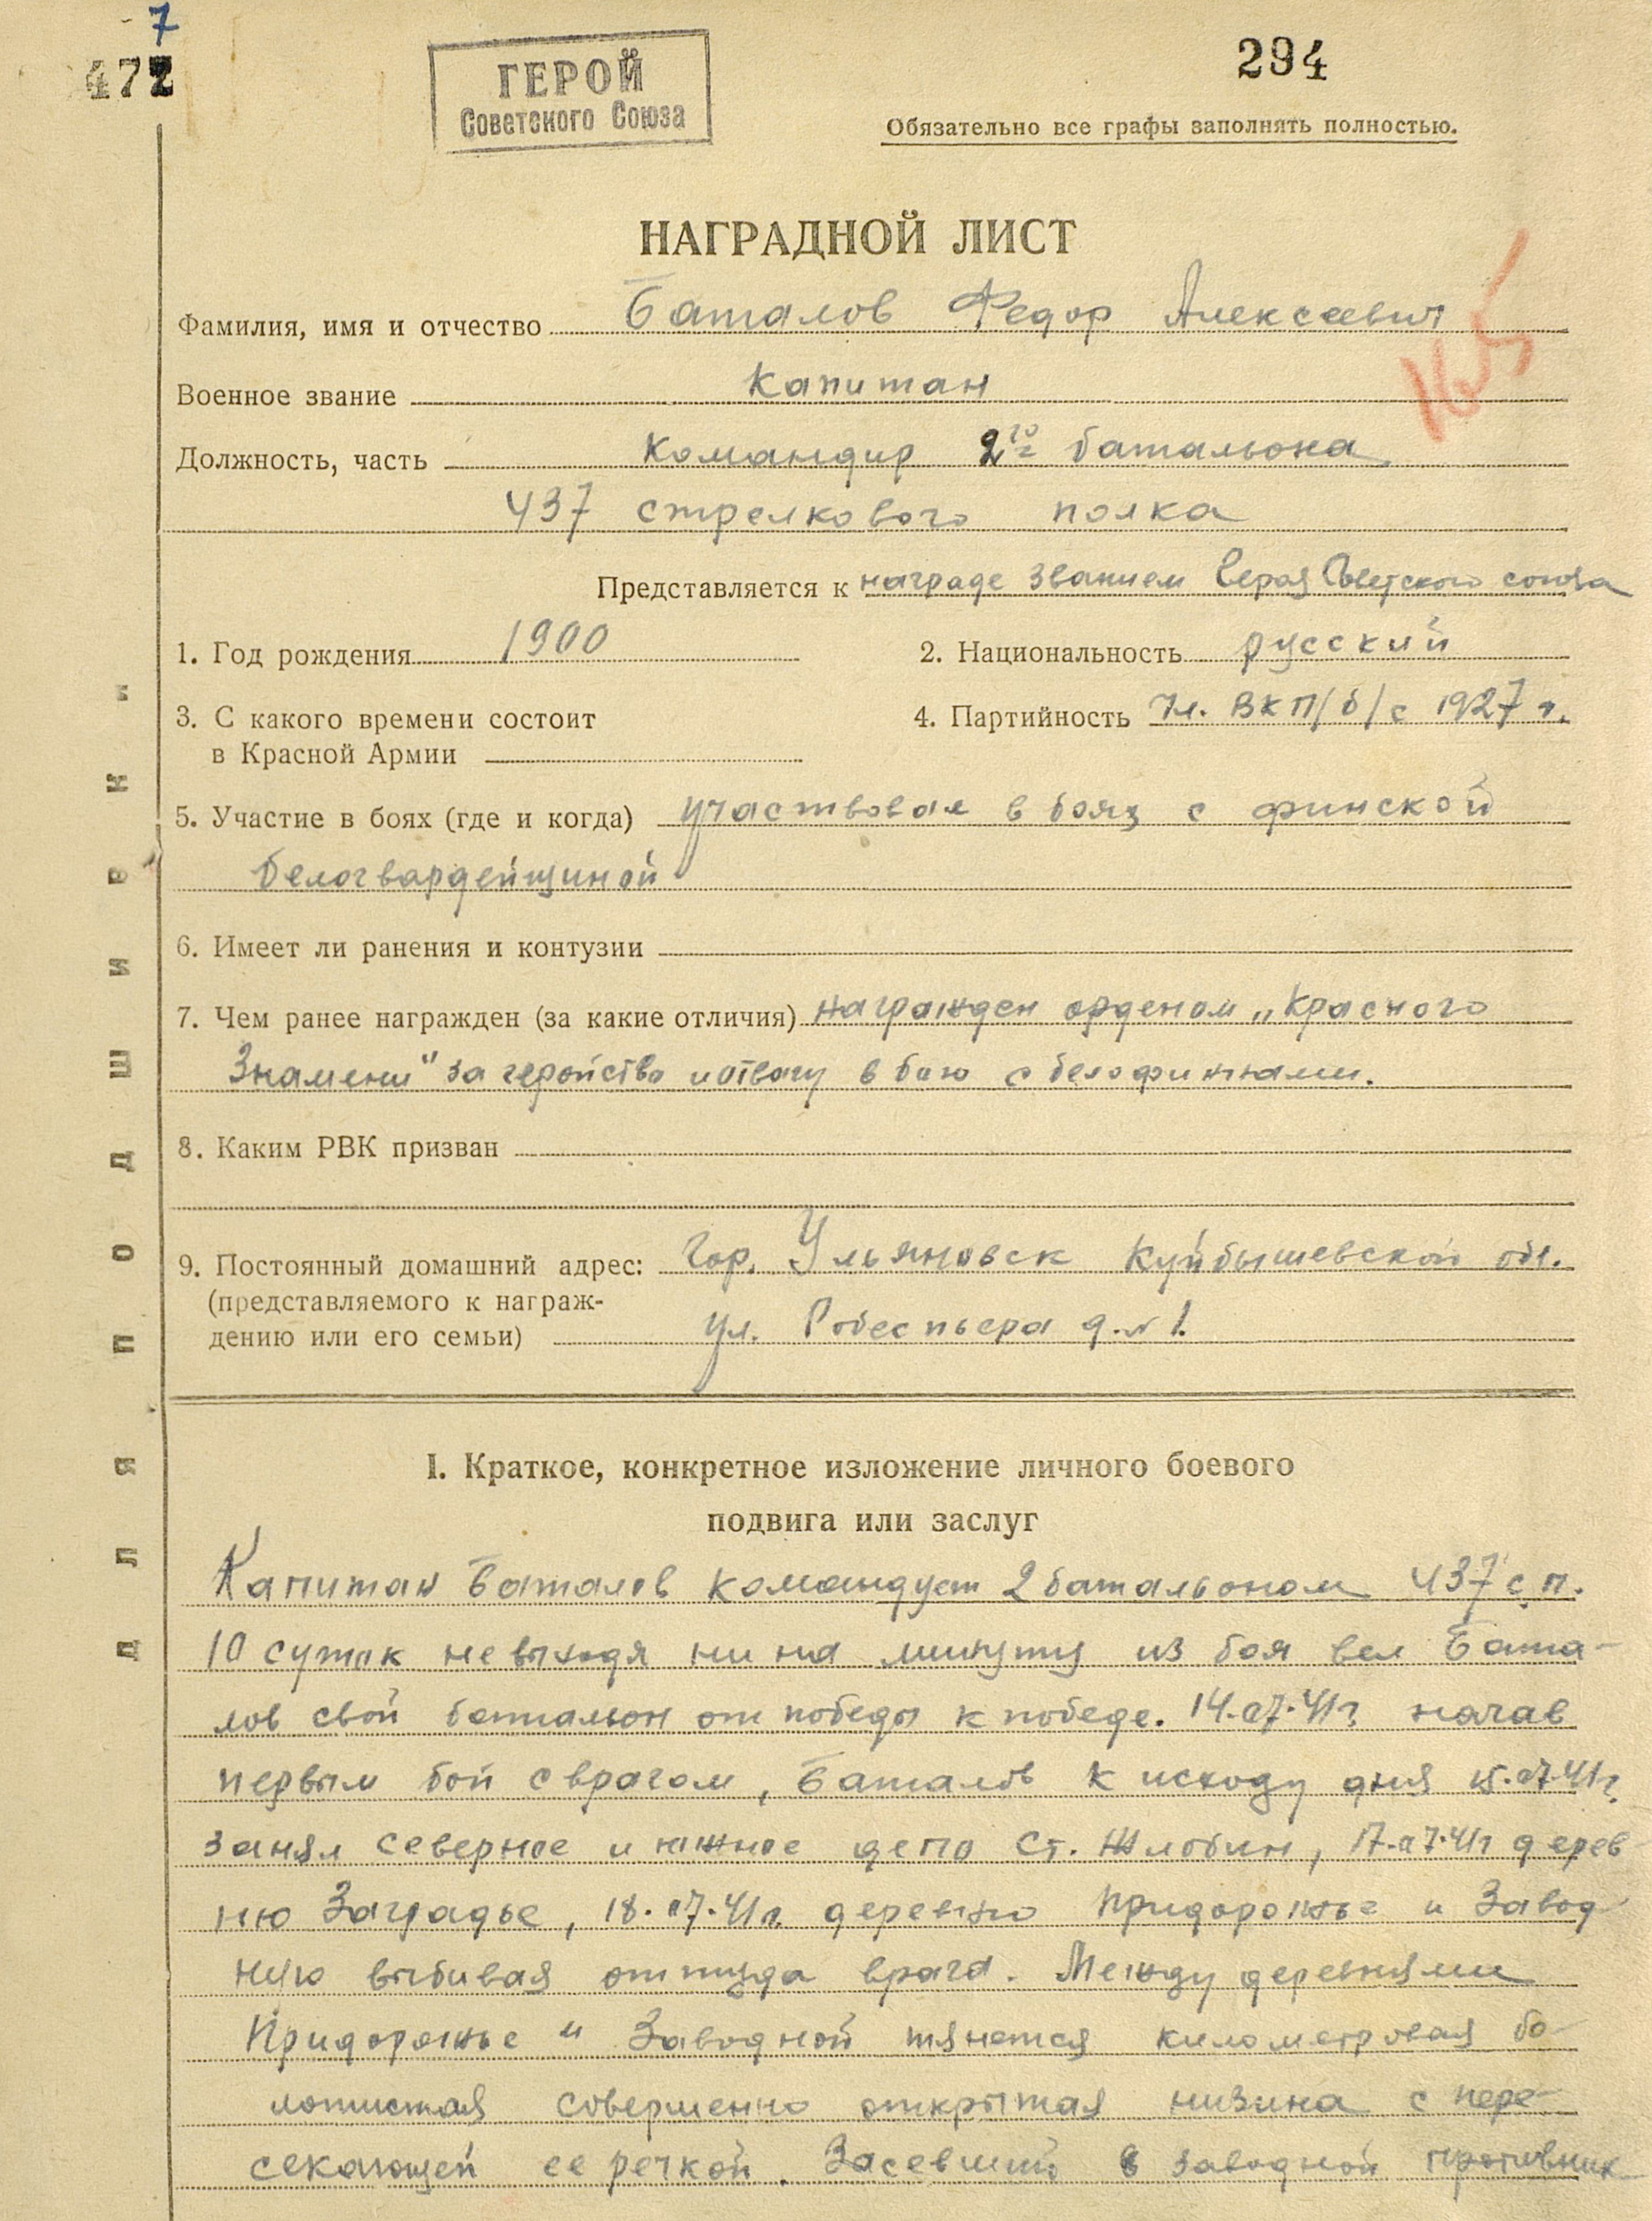 7
472
ГЕРОЙ
Советского Союза
294
Обязательно все графы заполнять полностью.
НАГРАДНОЙ ЛИСТ
165
Фамилия, имя и отчество Баталов Федор Алексеевич
Военное звание Капитан
Должность, часть Командир 2го батальона
437 стрелкового полка
Представляется к награде званием Героя Советского союза
1. Год рождения 1900
2. Национальность русский
3. С какого времени состоит
в Красной Армии
4. Партийность Чл. ВКП/б/ с 1927 г.
5. Участие в боях (где и когда) участвовал в боях с финской
белогвардейщиной
6. Имеет ли ранения и контузии
7. Чем ранее награжден (за какие отличия) награжден орденом „Красного
Знамени" за геройство и отвагу в бою с белофиннами.
8. Каким РВК призван
9. Постоянный домашний адрес: Гор. Ульяновск Куйбышевской обл.
(представляемого к награж-
дению или его семьи) ул. Робеспьера д. № 1.
Для подшивки
I. Краткое, конкретное изложение личного боевого
подвига или заслуг
Капитан Баталов командует 2 батальоном 437 с.п.
10 суток не выходя ни на минуту из боя вел Бата-
лов свой батальон от победы к победе. 14.07.41г. начав
первым бой с врагом, Баталов к исходу дня 15.07.41г.
занял северное и южное депо ст. Жлобин, 17.07.41г дерев
ню Заградье, 18.07.41г. деревню Придорожье и Завод
ную выбивая оттуда врага. Между деревнями
Придорожье и Заводной тянется километровая бо-
лотистая совершенно открытая низина с пере-
секающей ее речкой. Засевший в заводной противник